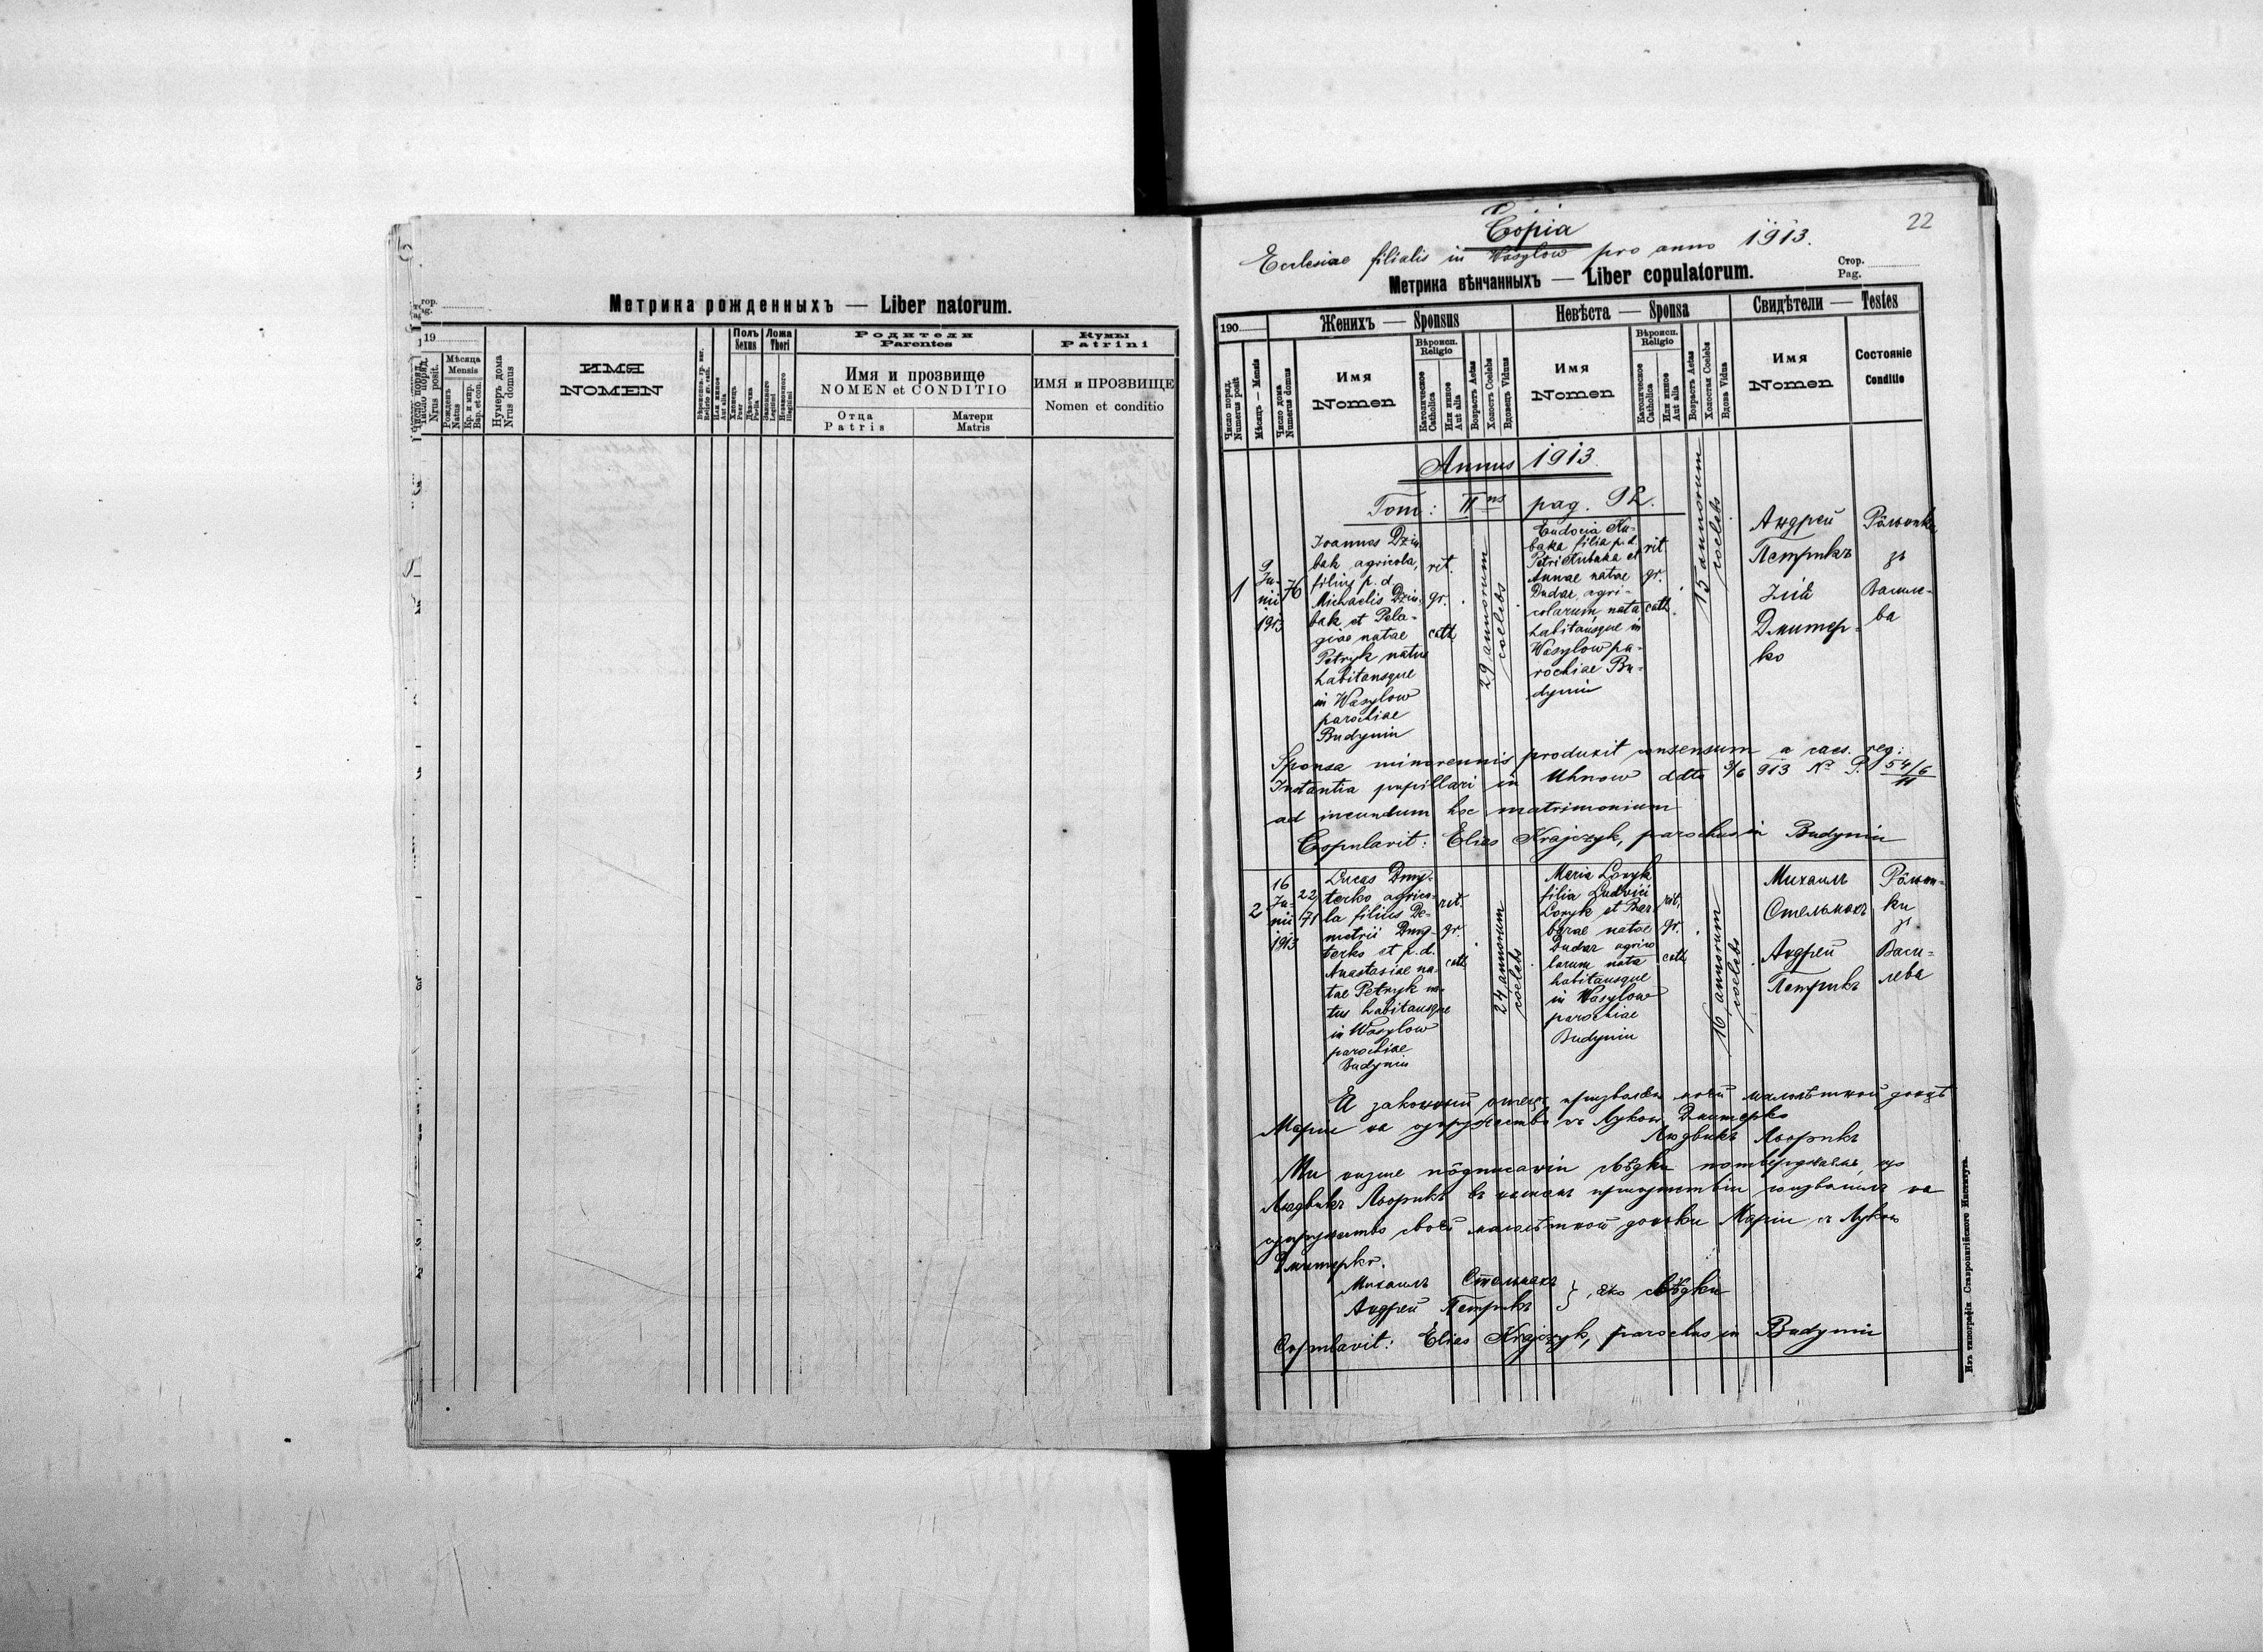 Стор.
Pag.
Метрика рожденныхъ — Liber natorum.
19
Число поряд.
Nrus posit.
Мѣсяца
Mensis
Рожденъ
Natus
Кр. и мир.
Bap. et con.
Нумеръ дома
Nrus domus
ИМЯ
NOMEN
Или инное
Aut alia
Полъ
Sexus
Хлопецъ
Puer
Дѣвочка
Puella
Ложа
Thori
Законного
Legitimi
Незаконного
Illegitimi
Родители
Parentes
Имя и прозвище
NOMEN et CONDITIO
Отца
Patris
Матери
Matris
Кумы
Patrini
ИМЯ и ПРОЗВИЩЕ
Nomen et conditio
22
Copia
Ecclesiae filialis in Wasylow pro anno 1913.
Метрика вѣнчанныхъ — Liber copulatorum.
Стор.
Pag.
190
Число поряд.
Numerus posit
Мѣсяцъ — Mensis
Число дома
Numerus domus
Женихъ — Sponsus
Имя
Nomen
Вѣроисп.
Religio
Католическое
Catholica
Или инное
Aut alia
Возрастъ Aetas
Холостъ Coelebs
Вдовецъ Viduus
Невѣста — Sponsa
Имя
Nomen
Вѣроисп.
Religio
Католическое
Catholica
Или инное
Aut alia
Возрастъ Aetas
Холостая Coelebs
Вдова Vidua
Свидѣтели — Testes
Имя
Nomen
Состояніе
Conditio
Annus 1913.
Tom: II pag. 92.
1
9
Ju-
nii
1913
76
Joannes Dziu
bak agricola,
filius p. d.
Michaelis Dziu-
bak et Pela-
giae natae
Petryk natus
habitansque
in Wasylow
parochiae
Budynin
rit.
gr.
cath
29 annorum
coelebs
Eudocia Ku-
baka filia p. d.
Petri Kubaka et
Annae natae
Dudar, agri-
colarum nata
habitansque in
Wasylow pa-
rochiae Bu-
dynin
rit
gr.
cath
15 annorum
coelebs
Андрей
Петрикъ
Илія
Дмитер-
ко
Рôльники
зъ
Василе-
ва
Sponsa minorennis produxit consensum a caes. reg:
Instantia pupillari in Uhnow ddto 3/6 913 No P. 54/6
11
ad ineundum hoc matrimonium
Copulavit: Elias Krajczyk, parochus in Budynin
2
16
Ju-
nii
1913
22/
71
Lucas Dmy-
terko agrico-
la filius De-
metrii Dmy-
terko et p. d.
Anastasiae na-
tae Petryk na-
tus habitansque
in Wasylow
parochiae
Budynin
rit.
gr.
cath
24 annorum
coelebs
Maria Loryk
filia Ludvici
Loryk et Bar-
barae natae
Dudar agrico
larum nata
habitansque
in Wasylow
parochiae
Budynin
rit.
gr.
cath
16 annorum
coelebs
Михаилъ
Стельмахъ
Андрей
Петрикъ
Рôльни-
ки
зъ
Васи-
лева
Я законный отецъ призволяю моей малолѣтной донцѣ
Маріи на супружество съ Лукою Дмитерко
Людвикъ Льорикъ
Ми низше пôдписаніи свѣдки потверджаемъ, що
Людвикъ Льорикъ въ нашомъ присутствіи зôзволилъ на
супружество своєй малолѣтной доньки Маріи съ Лукою
Дмитерко.
Михаилъ Стельмахъ
Андрей Петрикъ } яко свѣдки
Copulavit: Elias Krajczyk, parochus in Budynin
Изъ типографіи Ставропигійского Института.